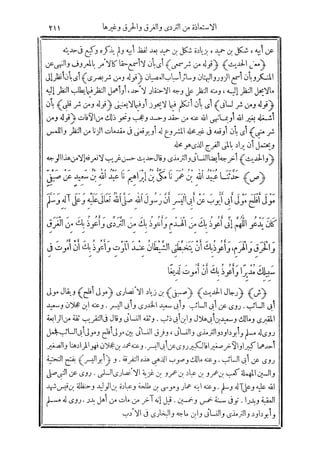 الاستعاذة من التردى والغرق والحرق وغيرها ٢١١
عن أبيه ، شكل بن حميد ، بزيادة شكل بن حميد بعد لفظ أبيه ولم يذكره وكيع فى حديثه
﴿معنى الحديث﴾ ﴿قوله من شر سمعى﴾ أى بأن لا أسمع حقا كالأمر بالمعروف والنهى عن
المنكر وبأن أسمع الزور والبهتان وسائر أسباب العصيان ﴿قوله ومن شر بصرى﴾ أى بأن أنظر إلى
مالا يحل النظر إليه، ومنه النظر على وجه الاحتقار لأحد، أو أهمل النظر فيما يطلب النظر إليه
﴿قوله ومن شر لسانى﴾ أى بأن أتكلم فيما لا يجوز أو فيما لا يعنينى ﴿قوله ومن شر قلبى﴾ بأن
أشغله بغير الله أو بما نهى الله عنه من حقد وحسد وعجب ونحو ذلك من الآفات ﴿قوله ومن
شر منيى﴾ أى بأن أوقعه فى غير محله المشروع له أو يوقعنى فى مقدمات الزنا من النظر واللمس
ويحتمل أن يراد بالمنى الفرج الذى هو محله
﴿والحديث﴾ أخرجه أيضا النسائى والترمذى وقال حديث حسن غريب لا نعرفه إلا من هذا الوجه
﴿ص﴾ حَدَّثَنَا عُبَيْدُ اللهِ بْنُ عُمَرَ نَا مَكِّىُّ بْنُ إِبْرَاهِيمَ نَا عَبْدُ اللهِ بْنُ سَعِيدٍ عَنْ صَيْفِىٍّ
مَوْلَى أَفْلَحَ مَوْلَى أَبِى أَيُّوبَ عَنْ أَبِى الْيَسَرِ أَنَّ رَسُولَ اللهِ صَلَّى اللهُ تَعَالَى عَلَيْهِ وَعَلَى آلِهِ وَسَلَّمَ
كَانَ يَدْعُو اللَّهُمَّ إِنِّى أَعُوذُ بِكَ مِنَ الْهَدْمِ وَأَعُوذُ بِكَ مِنَ التَّرَدِّى وَأَعُوذُ بِكَ مِنَ الْغَرَقِ
وَالْحَرَقِ وَالْهَرَمِ، وَأَعُوذُ بِكَ أَنْ يَتَخَبَّطَنِى الشَّيْطَانُ عِنْدَ الْمَوْتِ وَأَعُوذُ بِكَ أَنْ أَمُوتَ فِى
سَبِيلِكَ مُدْبِرًا وَأَعُوذُ بِكَ أَنْ أَمُوتَ لَدِيغًا
﴿ش﴾ ﴿رجال الحديث﴾ ﴿صيفى﴾ بن زياد الأنصارى ﴿مولى أفلح﴾ ويقال مولى
أبى السائب. روى عن أبى السائب. وأبى سعيد الخدرى وأبى اليسر. وعنه ابن عجلان وسعيد
المقبرى ومالك وسعيد بن أبى هلال وابن أبى ذئب. وثقه النسائى وقال فى التقريب ثقة من الرابعة
روى له مسلم وأبو داود والترمذى والنسائى، وفرق النسائى بين مولى أفلح ومولى أبى السائب فجعل
أحدهما كبيرا والآخر صغيرا فالكبير روى عن أبى اليسر. وعنه محمد بن عجلان فهو المراد هنا والصغير
روى عن أبى السائب. وعنه مالك وصوب الذهبى هذه التفرقة. و ﴿أبو اليسر﴾ بفتح التحتية
والسين المهملة كعب بن عمرو بن عباد بن عمرو بن غزية الأنصارى السلمى. روى عن النبى صلى
الله عليه وعلى آله وسلم. وعنه ابنه عمار وموسى بن طلحة وعبادة بن الوليد وحنظلة بن قيس شهد
العقبة وبدرا. توفى سنة خمس وخمسين. قيل إنه آخر من مات من أهل بدر. روى له مسلم
وأبو داود والترمذى والنسائى وابن ماجه والبخارى فى الأدب